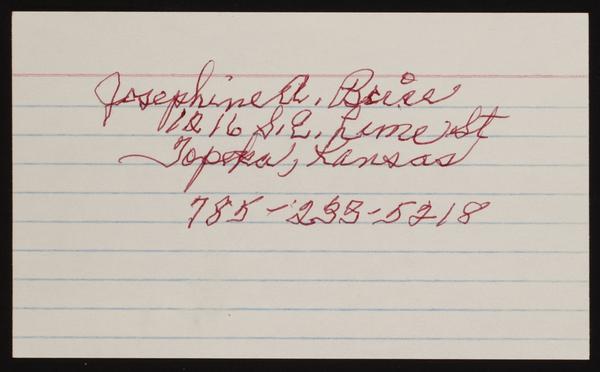 Josephine A.
1216 S.E. Lime St
Topeka, Kansas
785-233-5218